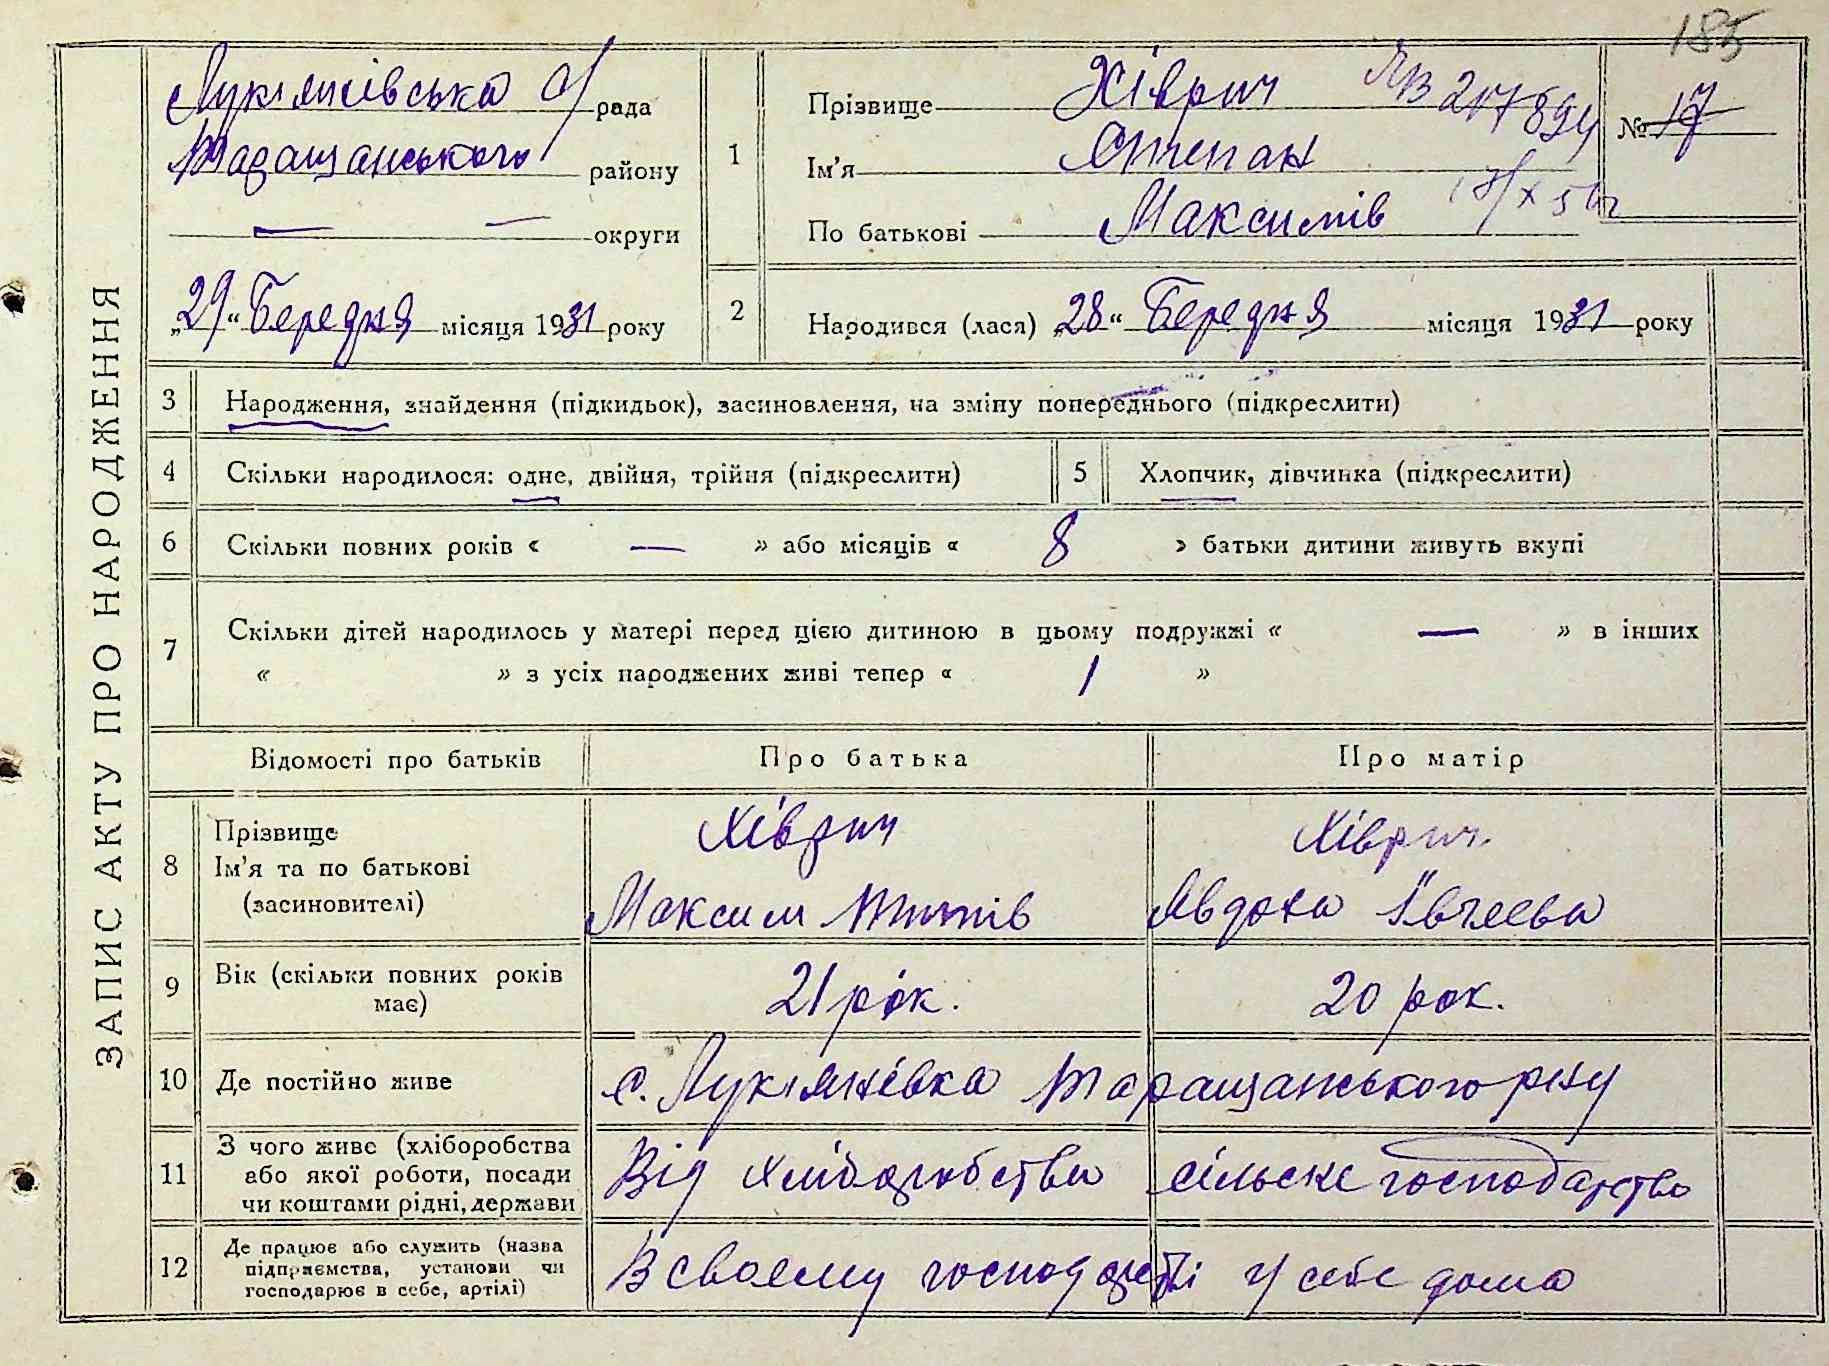 185
ЗАПИС АКТУ ПРО НАРОДЖЕННЯ
Лукіянівська с/рада
Таращанського району
— — округи
„29“ Березня місяця 1931 року
1
Прізвище Хіврич
Ім'я Степан
По батькові Максимів
ЯВ 217894
№ 17
2
Народився (лася) „28“ Березня місяця 1931 року
3 Народження, знайдення (підкидьок), засиновлення, на зміну попереднього (підкреслити)
4 Скільки народилося: одне, двійня, трійня (підкреслити)
5 Хлопчик, дівчинка (підкреслити)
6 Скільки повних років « — » або місяців « 8 » батьки дитини живуть вкупі
7 Скільки дітей народилось у матері перед цією дитиною в цьому подружжі « — » в інших
« » з усіх народжених живі тепер « 1 »
Відомості про батьків Про батька Про матір
8 Прізвище
Ім'я та по батькові
(засиновителі)
Хіврич
Максим Титів
Хіврич
Явдоха
9 Вік (скільки повних років
має)
21 рік.
20 рок.
10 Де постійно живе
с. Лукіянівка Таращанського р-ну
11 З чого живе (хліборобства
або якої роботи, посади
чи коштами рідні, держави
Від хліборобства
сільське господарство
12 Де працює або служить (назва
підприємства, установи чи
господарює в себе, артілі)
В своєму господарстві
у себе дома